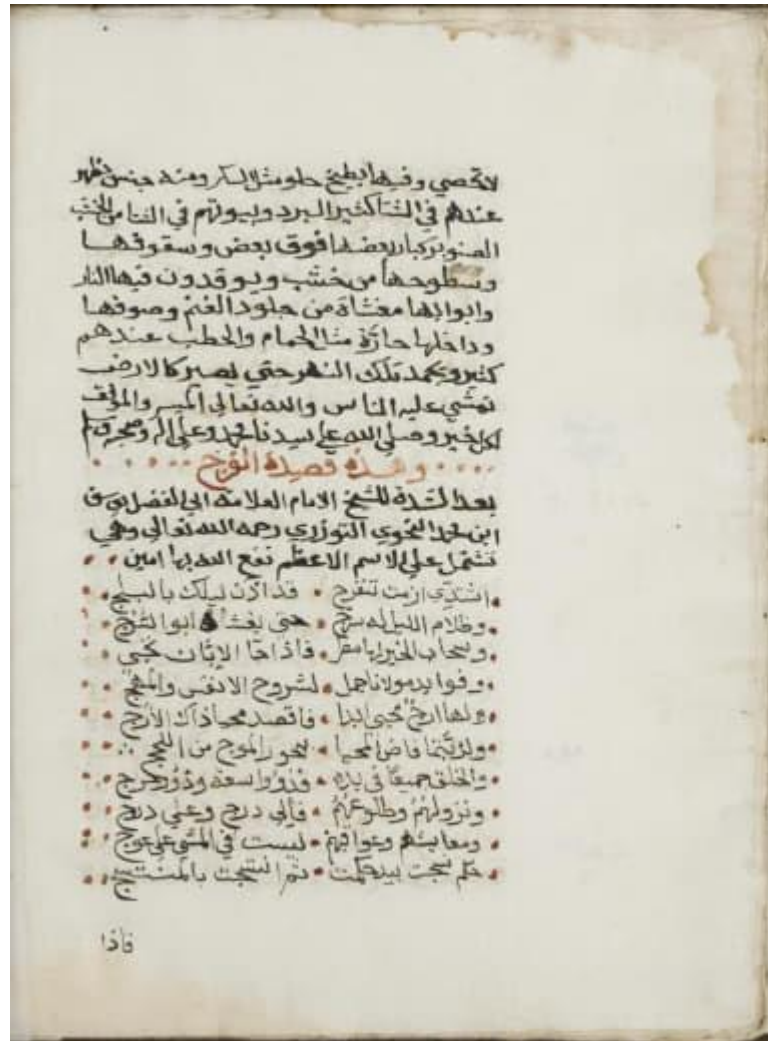 لا تحصي وفيها بطيخ حلو مثل السكر ومنه جنس يظهر
عندهم في الشتا كثير البرد وبيوتهم في الشتا من الخشب
الصنوبر كبار بعضها فوق بعض وسقوفها
وسطوحها من خشب ويوقدون فيها النار
وابوابها مغشاة من جلود الغنم وصوفها
وداخلها حارّة مثل الحمام والحطب عندهم
كثير ويجمد تلك النهر حتي يصير كالارض
تمشي عليه الناس والله تعالي الميسر والموفق
لكل خير وصلي الله علي سيدنا محمد وعلي اله وصحبه وسلم
وهذه قصيدة الفرج
بعد الشدة للشيخ الامام العلامة ابي الفضل يوسف
ابن محمد النحوي التوزري رحمه الله تعالي وهي
تشتمل علي الاسم الاعظم نفع الله بها امين
اشتدّي ازمت تنفرج • قد اذن ليلك بالبلج
وظلام الليل له سرج • حتي يغشاه ابوا السرج
وسحاب الخير لها مطر • فاذا جا الابّان تجي
وفوايد مولانا جمل • لسروح الانفس والمهج
ولها ارج محيي ابدا • فاقصد محيا ذاك الارج
ولربّتما فاض المحيا • ببحور الموج من اللجج
والخلق جميعًا في يده • فذووا سعة وذوو حرج
ونزولهم وطلوعهم • فالي درج وعلي درج
ومعايشهم وعواقبهم • ليست في المشي علي عوج
حكم نسجت بيد حكمت • ثم انتسجت بالمنتسج
فاذا